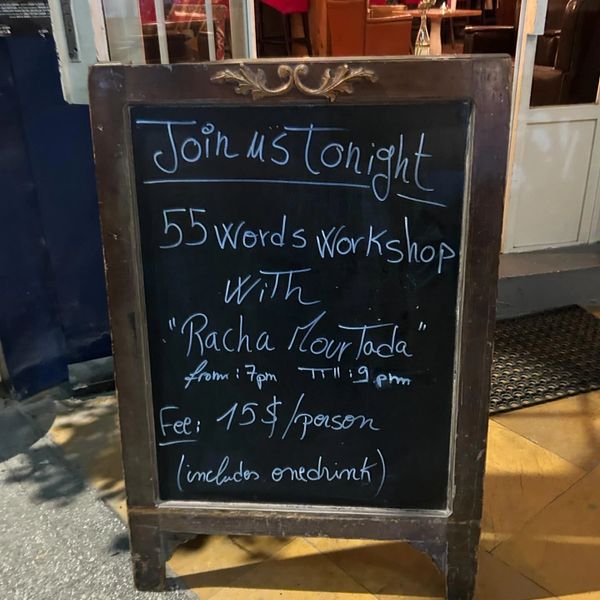 Join us Tonight
55 words workshop
with
"Racha MourTada"
from: 7pm Till: 9pm
Fee: 15$/person
(includes one drink)